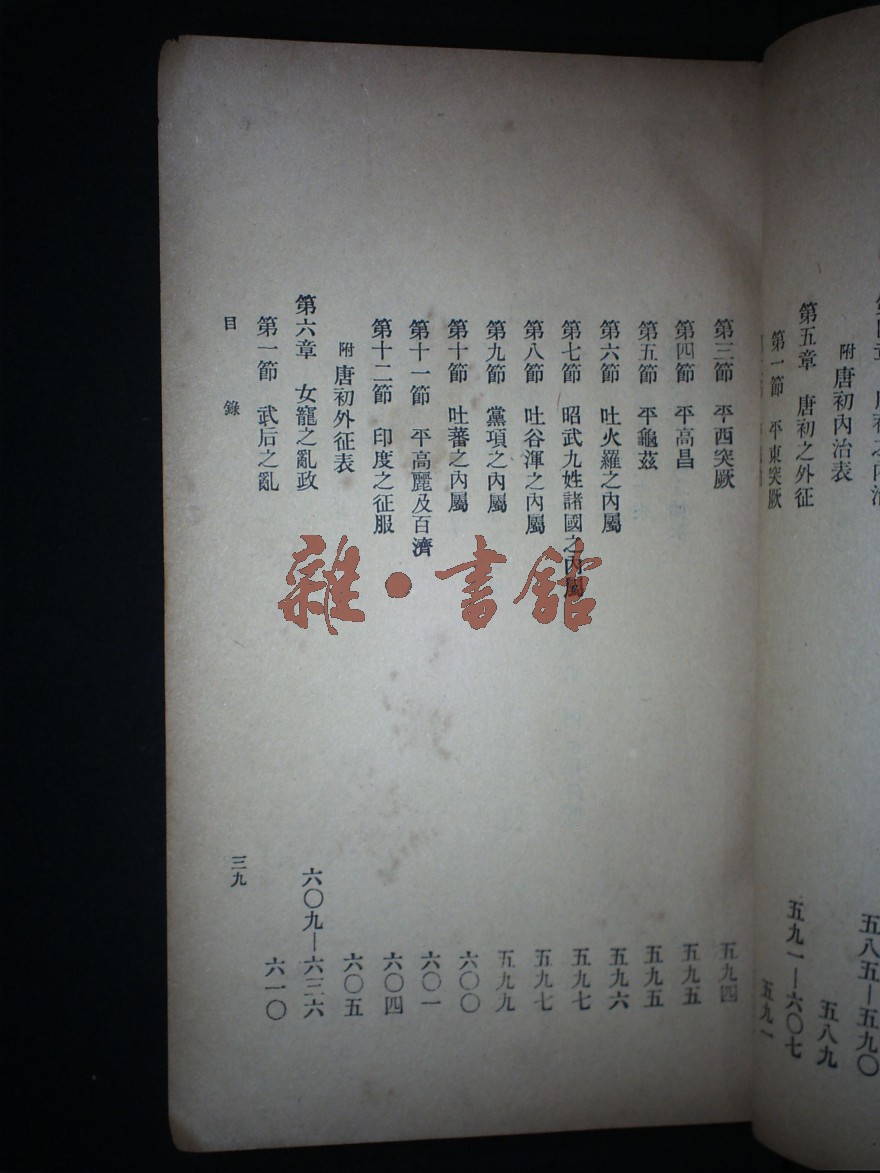 附 唐初內治表 五八九
第五章 唐初之外征 五九一—六〇七
第一節 平東突厥 五九一
第三節 平西突厥 五九四
第四節 平高昌 五九五
第五節 平龜茲 五九五
第六節 吐火羅之內屬 五九六
第七節 昭武九姓諸國之內屬 五九七
第八節 吐谷渾之內屬 五九七
第九節 黨項之內屬 五九九
第十節 吐蕃之內屬 六〇〇
第十一節 平高麗及百濟 六〇一
第十二節 印度之征服 六〇四
附 唐初外征表 六〇五
第六章 女寵之亂政 六〇九—六三六
第一節 武后之亂 六一〇
目錄 三九
雜·書館